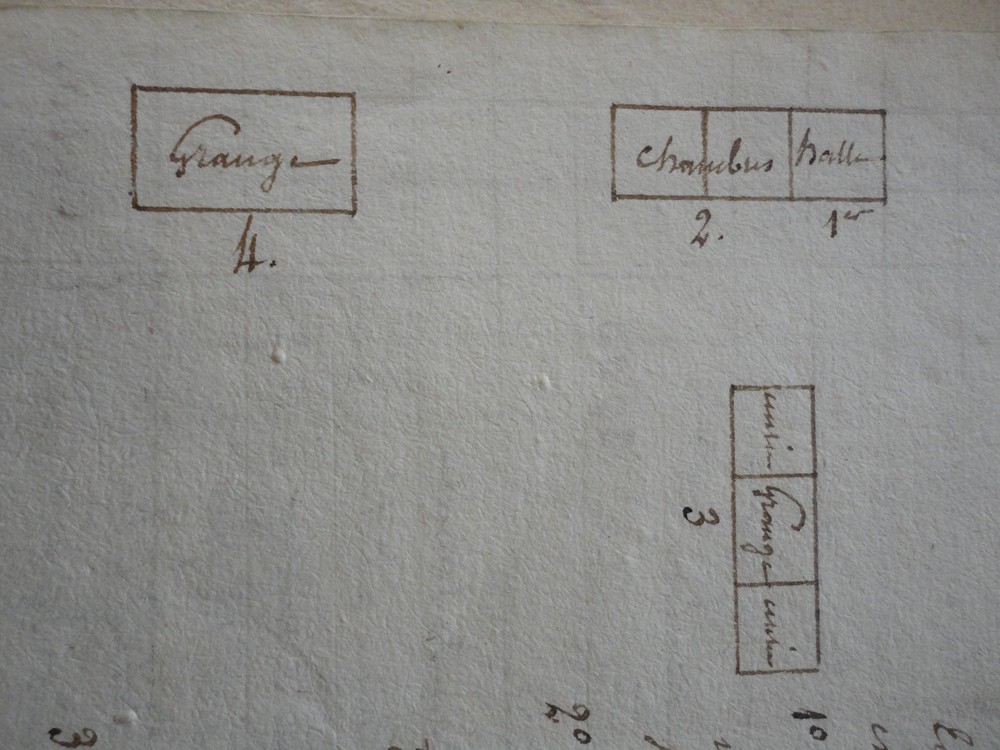 Grange
4.
chambres halle
2. 1er
Grange
3
3
2o
1o